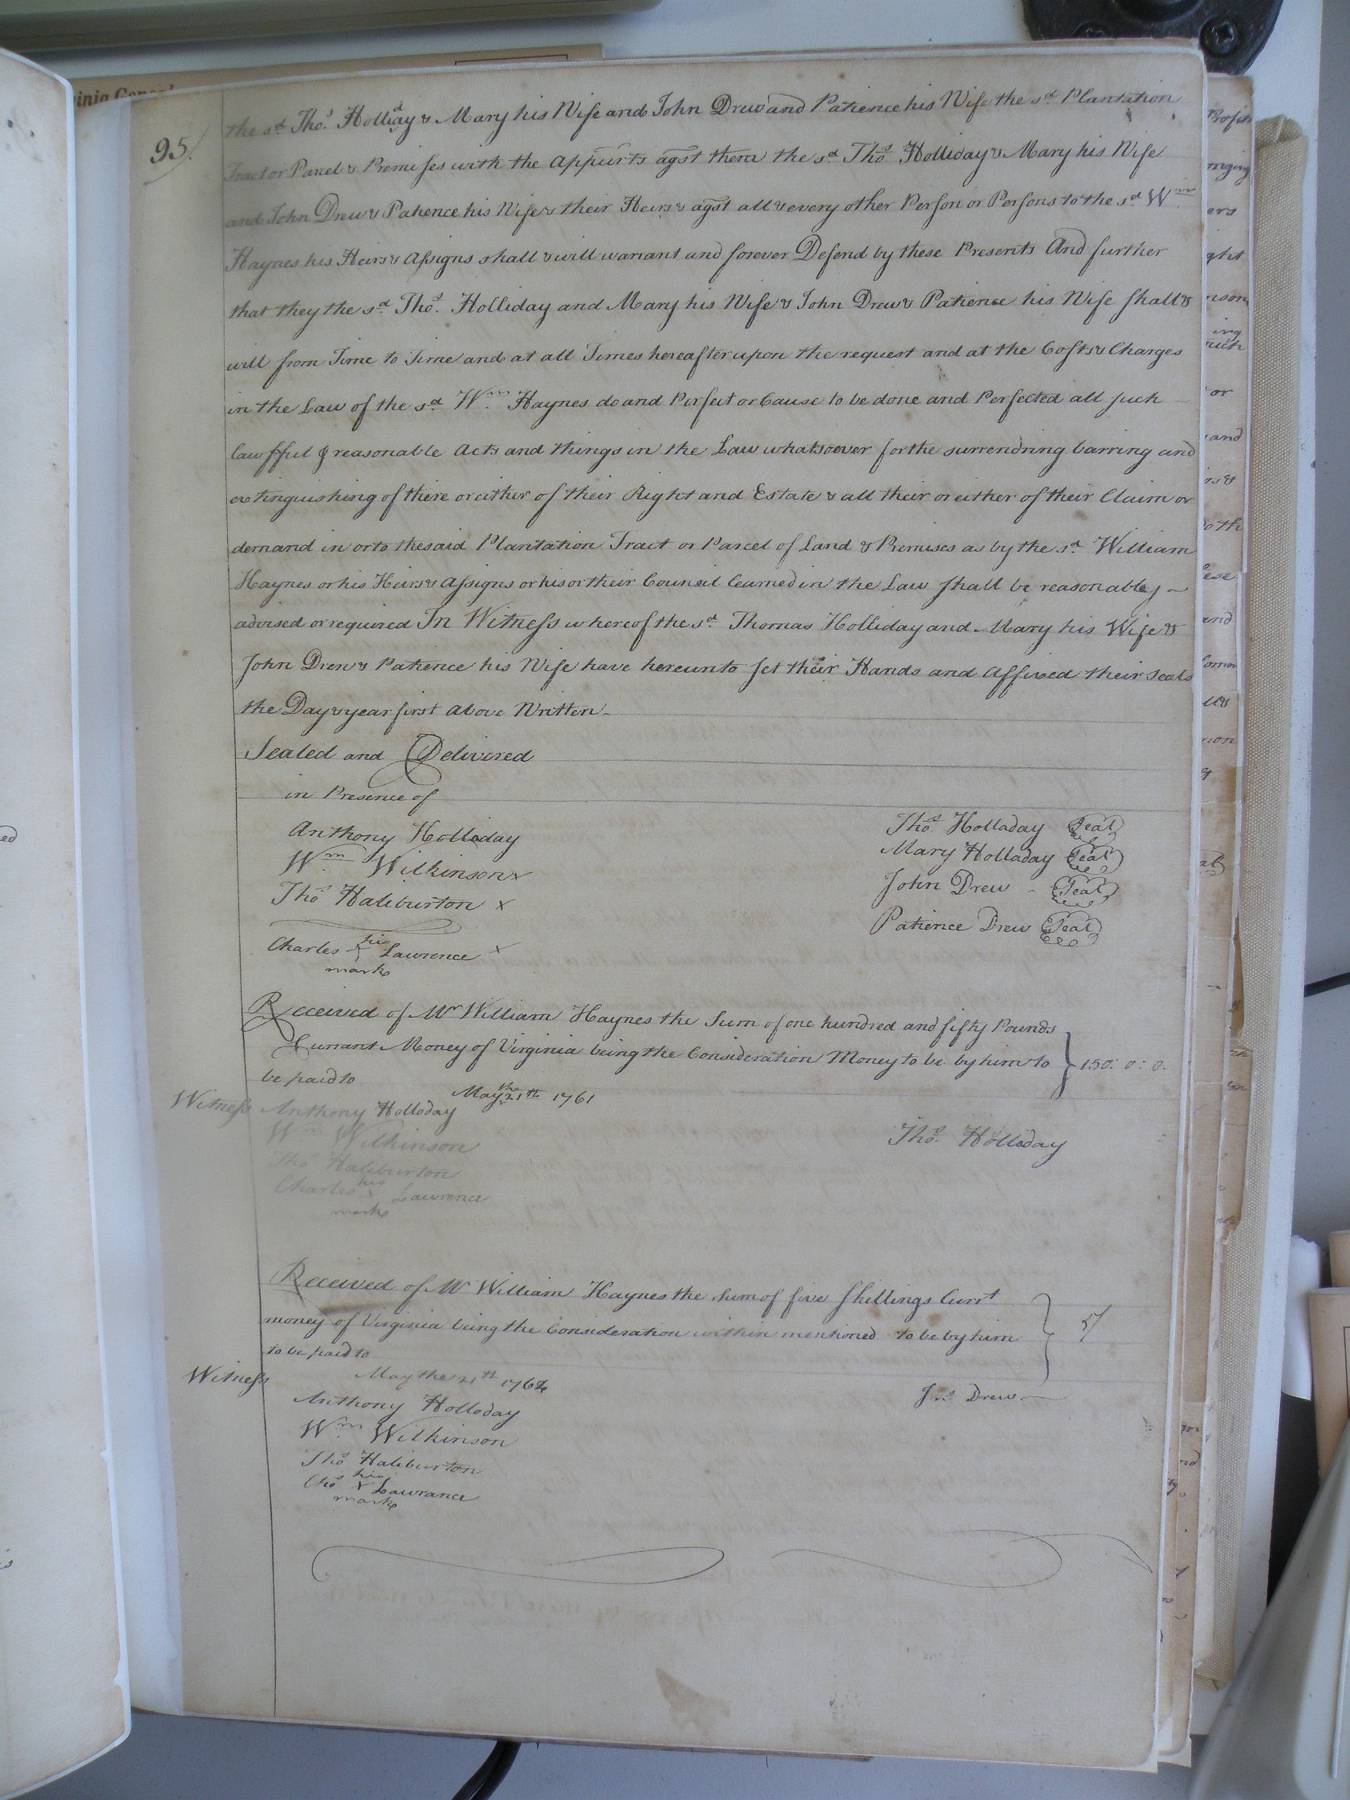 95.
the sd. Thos. Holliday & Mary his Wife and John Drew and Patience his Wife the sd. Plantation
Tract or Parcel & Premises with the Appurts agst them the sd. Thos. Holliday & Mary his Wife
and John Drew & Patience his Wife & their Heirs & agst all & every other Person or Persons to the sd. Wm.
Haynes his Heirs & Assigns shall & will warrant and forever Defend by these Presents And further
that they the sd. Thos. Holliday and Mary his Wife & John Drew & Patience his Wife shall &
will from Time to Time and at all Times hereafter upon the request and at the Costs & Charges
in the Law of the sd. Wm. Haynes do and Perfect or Cause to be done and Perfected all such
lawfful & reasonable Acts and things in the Law whatsoever for the surrendring barring and
extinguishing of there or either of their Right and Estate & all their or either of their Claim or
demand in or to the said Plantation Tract or Parcel of Land & Premises as by the sd. William
Haynes or his Heirs & Assigns or his or their Council learned in the Law shall be reasonably
advised or required In Witness whereof the sd. Thomas Holliday and Mary his Wife &
John Drew & Patience his Wife have hereunto set their Hands and Affixed their Seals
the Day & year first above Written
Sealed and Delivered
in Presence of
Anthony Holladay
Wm. Wilkinson x
Thos Haliburton x
Charles his Lawrence x
mark
Thos. Holladay Seal
Mary Holladay Seal
John Drew Seal
Patience Drew Seal
Received of Mr William Haynes the Sum of one hundred and fifty Pounds
Currant Money of Virginia being the Consideration Money to be by him to
be paid to
150: 0: 0.
May the 21th 1761
Witness Anthony Holloday
Wm Wilkinson
Thos Haliburton
Charles his x Lawrence
mark
Thos. Holladay
Received of Mr William Haynes the Sum of five Shillings Currt
money of Virginia being the Consideration within mentioned to be by him
to be paid to
5/
May the 21th 1761
Witness
Anthony Holloday
Wm. Wilkinson
Thos Haliburton
Chos his x Lawrance
mark
Jno. Drew